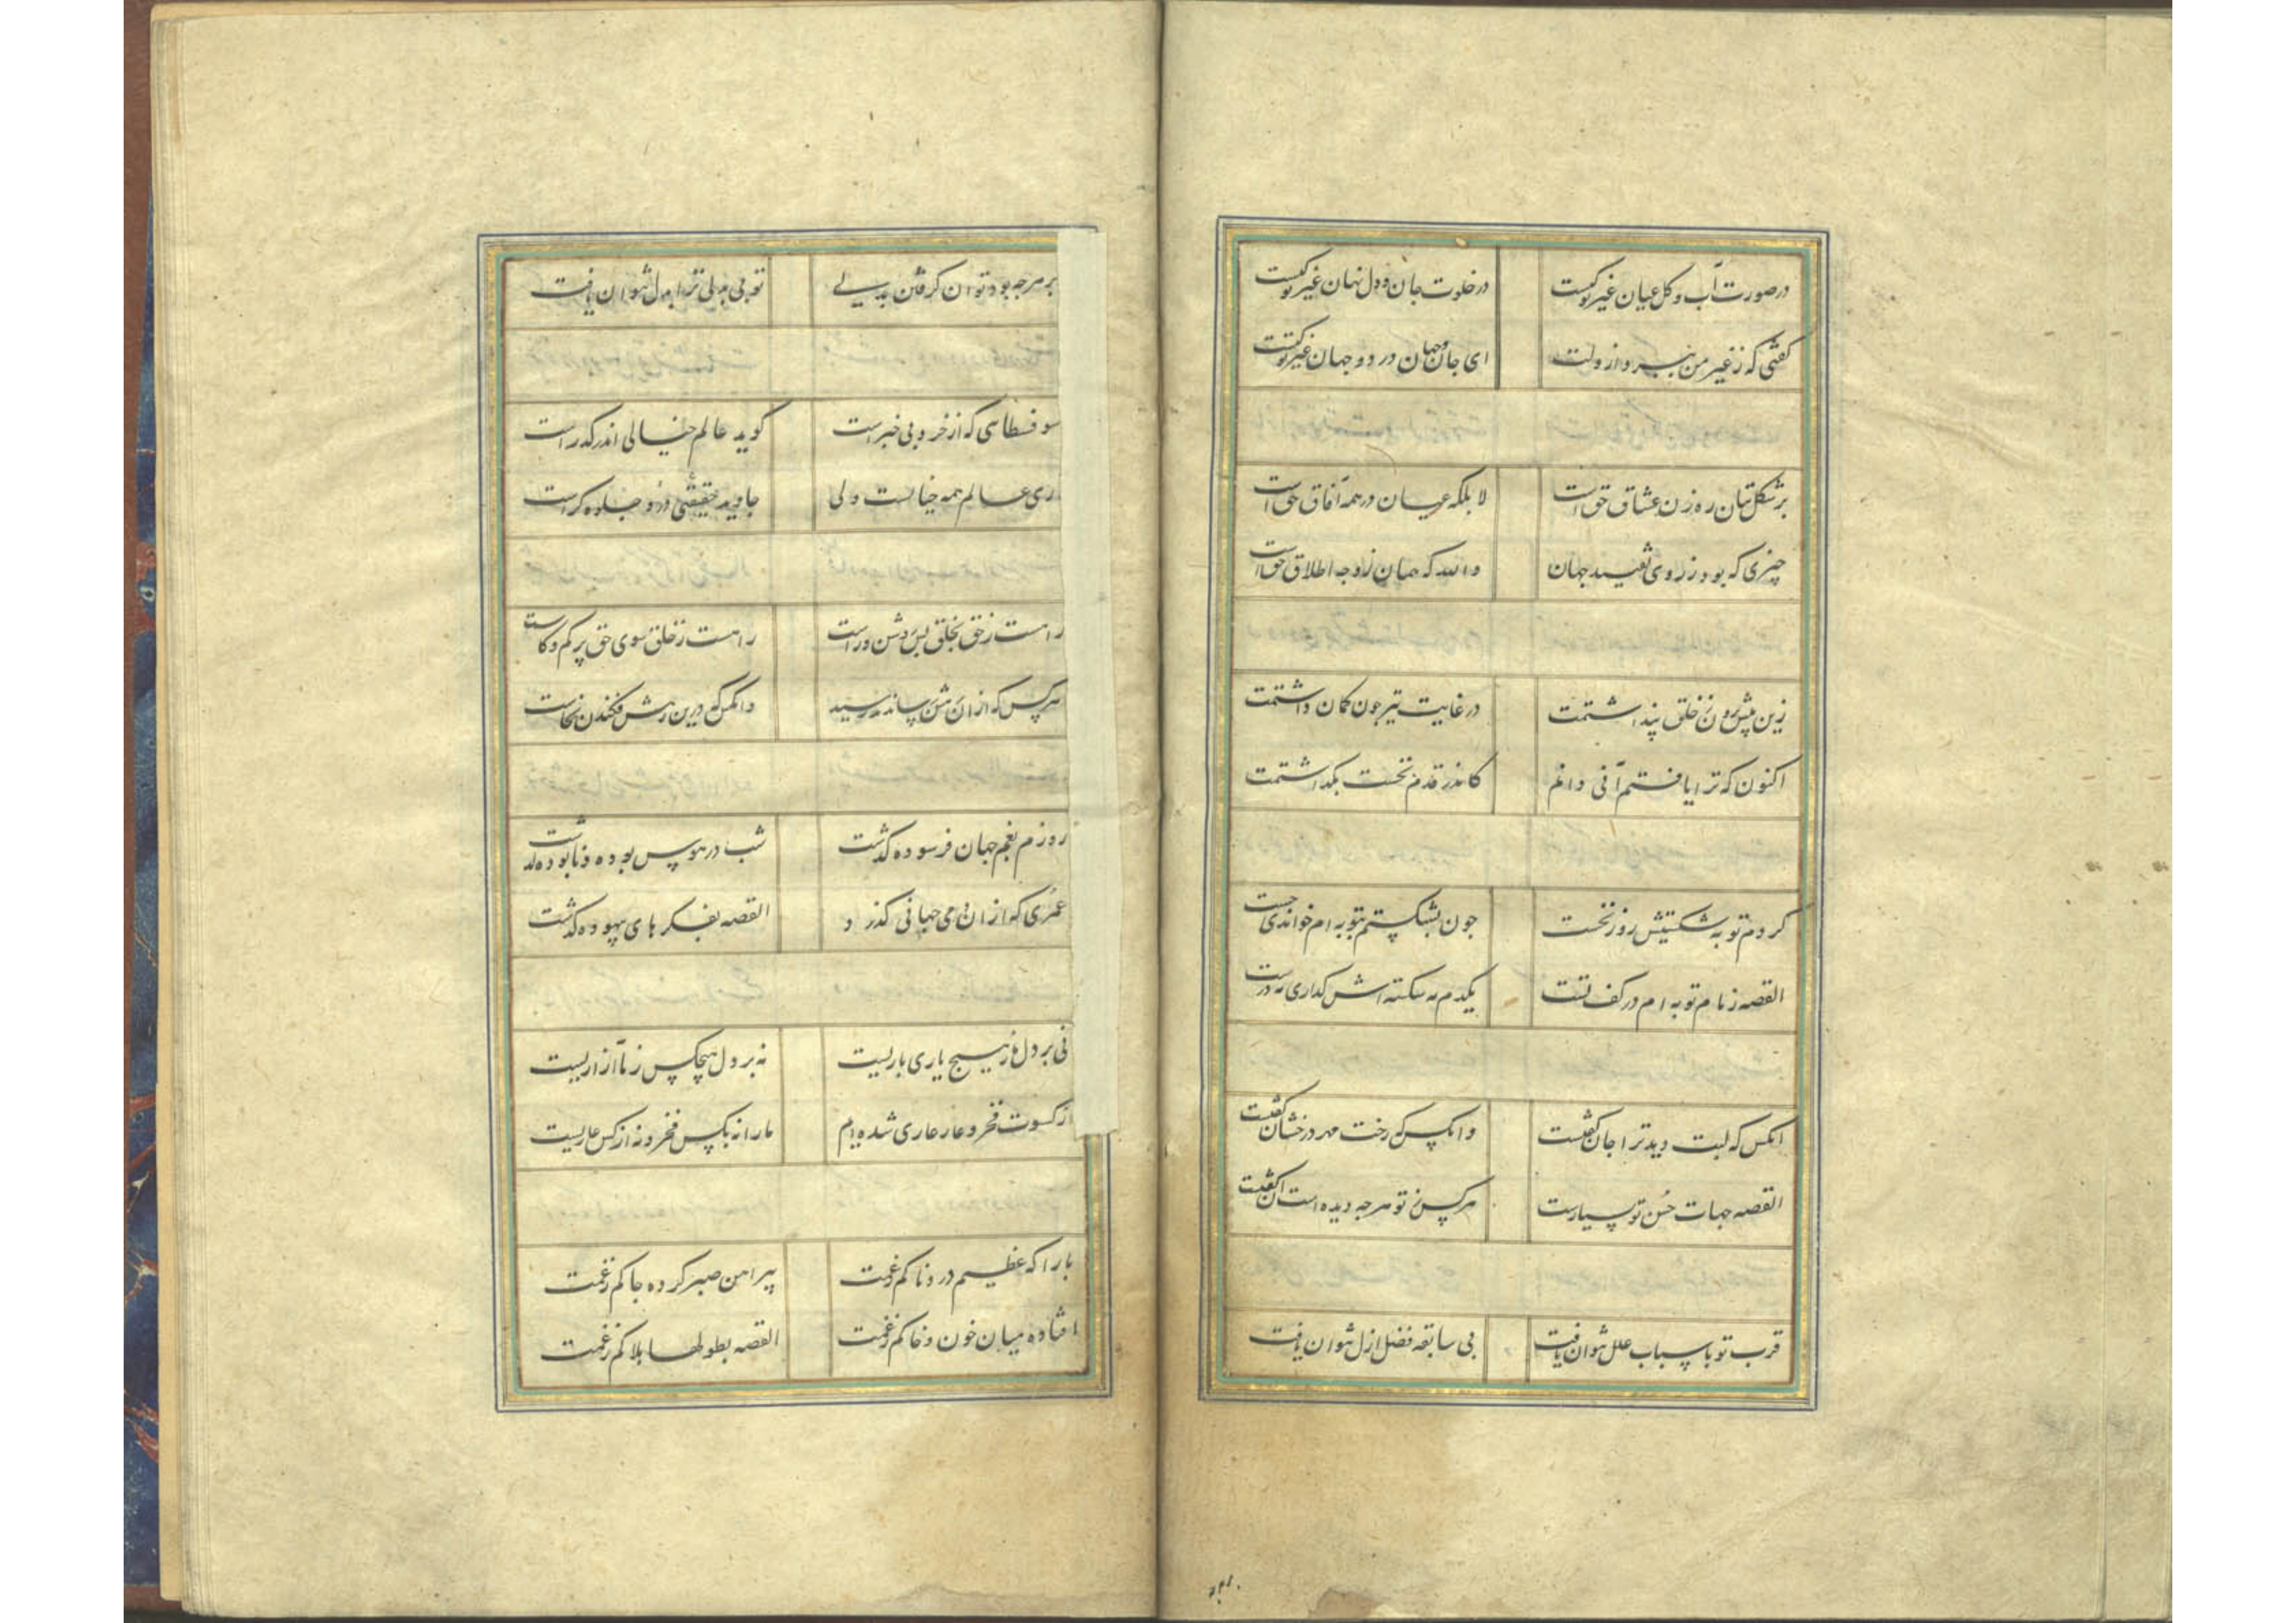 درصورت آب و کل عیان غیر تو کیست
درخلوت جان و دل نهان غیر تو کیست
کفتی که ز غیر من بپرداز دلت
ای جان و جهان در دو جهان غیر تو کیست
برشکل بتان ره زن عشاق حق است
لا بلکه عیان درهمه آفاق حق است
چیزی که بود ز روی تقیید جهان
والله که همان ز وجه اطلاق حق است
زین پیش برون ز خلق پنداشتمت
درغایت سیر جون کمان داشتمت
اکنون که ترا یافتم آنی دانم
کاندر قدم نخست بکذاشتمت
کردم توبه شکستیش روز نخست
جون بشکستم بتوبه ام خواندی جست
القصه زمام توبه ام در کف تست
یکدم نه شکسته اش کذاری نه درست
انکس که لبت دید ترا جان کفتست
وانکس که رخت مهر درخشان کفتست
القصه جهات حسن تو بسیارست
هرکس ز تو هرجه دیده است آن کفتست
قرب تو باسباب علل نتوان یافت
بی سابقه فضل ازل نتوان یافت
برهرجه بود توان کرفتن بدلی
تو بی بدلی ترا بدل نتوان یافت
سوفسطایی که از خرد بی خبرست
کوید عالم خیالی اندر کذرست
ری عالم همه خیالست ولی
جاوید حقیقتی درو جلوه کرست
راهست ز حق بخلق بس روشن و راست
راهست ز خلق سوی حق پر کم و کاست
هرکس که ازان رهش رسانند رسید
وانکس که درین رهش فکندند نخاست
روزم بغم جهان فرسوده کذشت
شب در هوس بوده و نابوده کذشت
عمری که ازان دمی جهانی کذرد
القصه بفکرهای بیهوده کذشت
نی بر دل ما ز هیچ یاری باریست
نه بر دل هیچکس ز ما آزاریست
از کسوت فخر و عار عاری شده ایم
مارا نه بکس فخر و نه از کس عاریست
بارا که عظیم دردناکم ز غمت
پیراهن صبر کرده جاکم ز غمت
افتاده میان خون و خاکم ز غمت
القصه بطولها هلاکم ز غمت